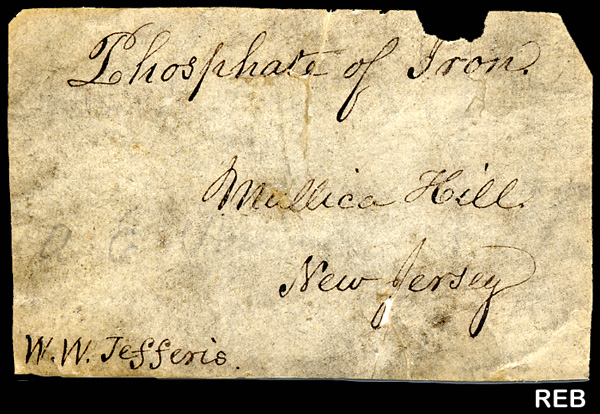 Phosphate of Iron.
Mullica Hill.
New Jersey
W. W. Jefferis.
REB